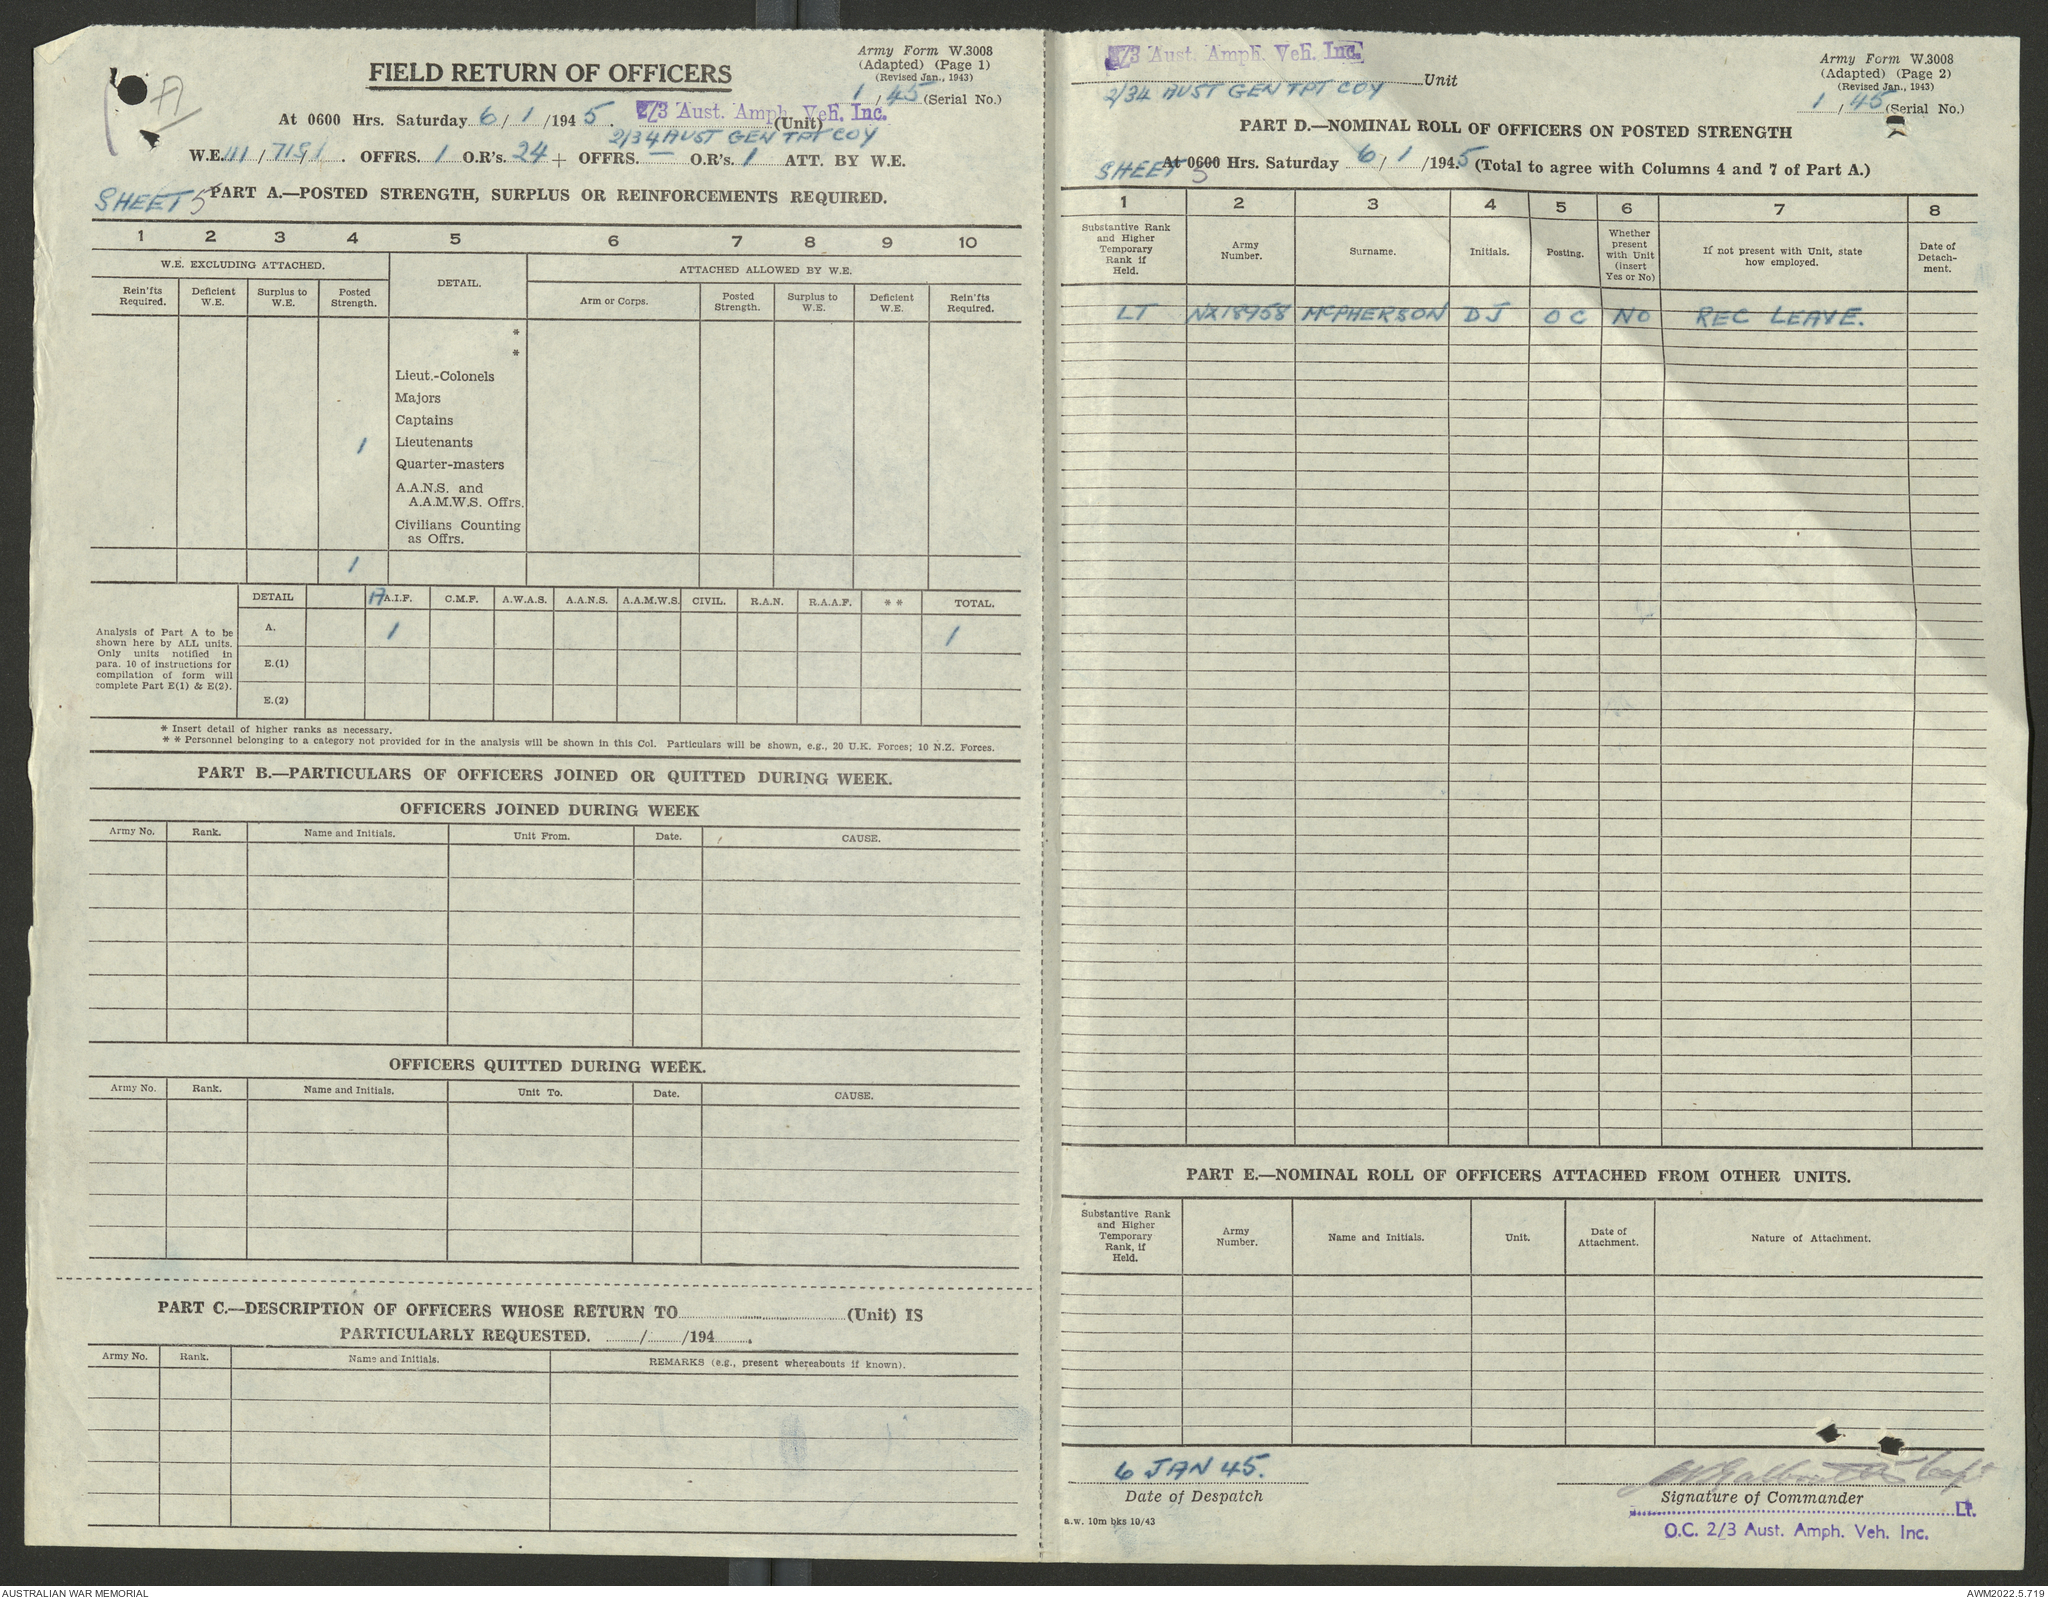 Army Form W.3008
(Adapted) (Page 1)
(Revised Jan., 1943)
FIELD RETURN OF OFFICERS
1 / 45 (Serial No.)
At 0600 Hrs. Saturday 6 / 1 /1945. 2/3 Aust. Amph. Veh. Inc. (Unit)
2/34 AUST GEN TPT COY
W.E. III / 719/1. OFFRS. 1 O.R's. 24 + OFFRS. — O.R's. 1 ATT. BY W.E.
SHEET 5 PART A.—POSTED STRENGTH, SURPLUS OR REINFORCEMENTS REQUIRED.
1 2 3 4 5 6 7 8 9 10
W.E. EXCLUDING ATTACHED. DETAIL. ATTACHED ALLOWED BY W.E.
Rein'fts Required. Deficient W.E. Surplus to W.E. Posted Strength. Arm or Corps. Posted Strength. Surplus to W.E. Deficient W.E. Rein'fts Required.
*
*
Lieut.-Colonels
Majors
Captains
1 Lieutenants
Quarter-masters
A.A.N.S. and
A.A.M.W.S. Offrs.
Civilians Counting
as Offrs.
1
DETAIL A.I.F. C.M.F. A.W.A.S. A.A.N.S. A.A.M.W.S. CIVIL. R.A.N. R.A.A.F. * * TOTAL.
A. 1 1
E.(1)
E.(2)
Analysis of Part A to be
shown here by ALL units.
Only units notified in
para. 10 of instructions for
compilation of form will
complete Part E(1) & E(2).
* Insert detail of higher ranks as necessary.
* * Personnel belonging to a category not provided for in the analysis will be shown in this Col. Particulars will be shown, e.g., 20 U.K. Forces; 10 N.Z. Forces.
PART B.—PARTICULARS OF OFFICERS JOINED OR QUITTED DURING WEEK.
OFFICERS JOINED DURING WEEK
Army No. Rank. Name and Initials. Unit From. Date. CAUSE.
OFFICERS QUITTED DURING WEEK.
Army No. Rank. Name and Initials. Unit To. Date. CAUSE.
PART C.—DESCRIPTION OF OFFICERS WHOSE RETURN TO (Unit) IS
PARTICULARLY REQUESTED. / /194 .
Army No. Rank. Name and Initials. REMARKS (e.g., present whereabouts if known).
2/3 Aust. Amph. Veh. Inc. Unit
2/34 AUST GEN TPT COY
Army Form W.3008
(Adapted) (Page 2)
(Revised Jan., 1943)
1 / 45 (Serial No.)
PART D.—NOMINAL ROLL OF OFFICERS ON POSTED STRENGTH
SHEET 5 At 0600 Hrs. Saturday 6 / 1 /1945 (Total to agree with Columns 4 and 7 of Part A.)
1 2 3 4 5 6 7 8
Substantive Rank and Higher Temporary Rank if Held. Army Number. Surname. Initials. Posting. Whether present with Unit (insert Yes or No) If not present with Unit, state how employed. Date of Detach-ment.
LT NX18958 McPHERSON DJ OC NO REC LEAVE.
PART E.—NOMINAL ROLL OF OFFICERS ATTACHED FROM OTHER UNITS.
Substantive Rank and Higher Temporary Rank, if Held. Army Number. Name and Initials. Unit. Date of Attachment. Nature of Attachment.
6 JAN 45.
Date of Despatch
Capt
Signature of Commander
Lt.
O.C. 2/3 Aust. Amph. Veh. Inc.
a.w. 10m bks 10/43
AUSTRALIAN WAR MEMORIAL
AWM2022.5.719